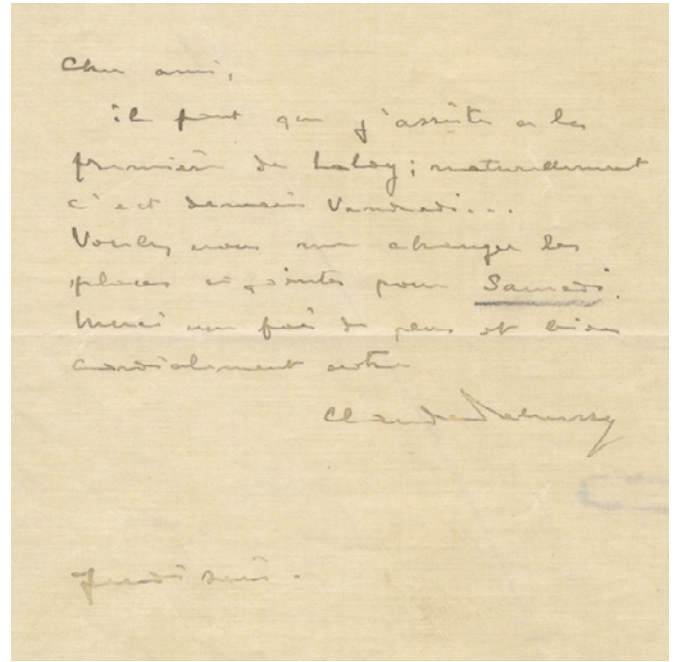 Cher ami,
il faut que j'assiste a la
première de Laloy; naturellement
c'est demain Vendredi...
Voulez vous me changer les
places ci jointes pour Samedi.
Merci une fois de plus et bien
cordialement votre
Claude Debussy
Jeudi soir.